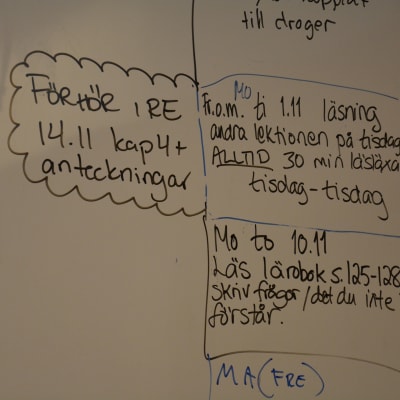 till droger
FÖRHÖR i RE
14.11 kap 4+
anteckningar
MO
Fr.o.m. ti 1.11 läsning
andra lektionen på tisdag
ALLTID 30 min läsläxa
tisdag-tisdag
Mo to 10.11
Läs lärobok s.125-128
skriv frågor /det du inte
förstår.
MA (FRE)